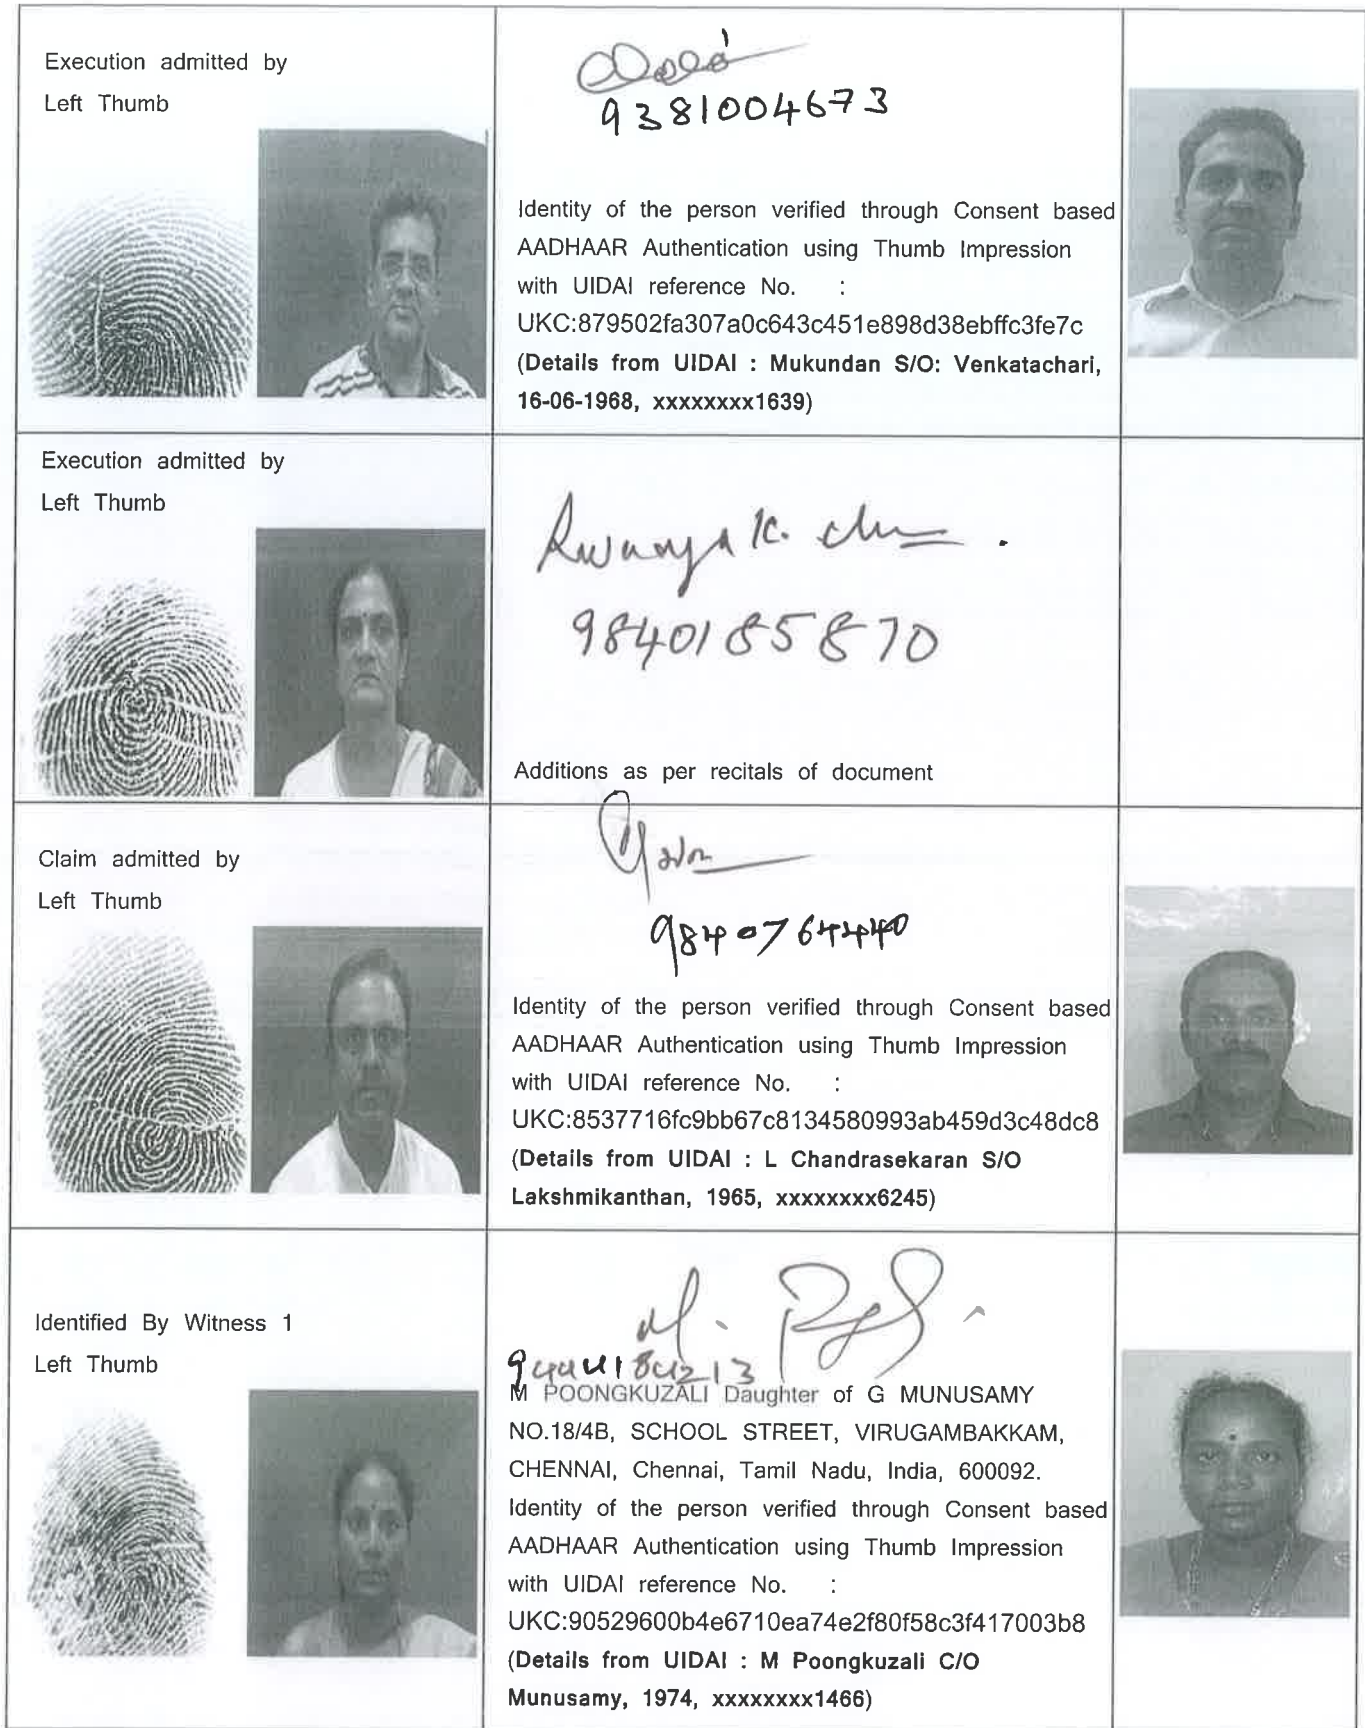 Execution admitted by
Left Thumb
9381004673
Identity of the person verified through Consent based
AADHAAR Authentication using Thumb Impression
with UIDAI reference No. :
UKC:879502fa307a0c643c451e898d38ebffc3fe7c
(Details from UIDAI : Mukundan S/O: Venkatachari,
16-06-1968, xxxxxxxx1639)
Execution admitted by
Left Thumb
9840185870
Additions as per recitals of document
Claim admitted by
Left Thumb
9840764440
Identity of the person verified through Consent based
AADHAAR Authentication using Thumb Impression
with UIDAI reference No. :
UKC:8537716fc9bb67c8134580993ab459d3c48dc8
(Details from UIDAI : L Chandrasekaran S/O
Lakshmikanthan, 1965, xxxxxxxx6245)
Identified By Witness 1
Left Thumb
M POONGKUZALI Daughter of G MUNUSAMY
NO.18/4B, SCHOOL STREET, VIRUGAMBAKKAM,
CHENNAI, Chennai, Tamil Nadu, India, 600092.
Identity of the person verified through Consent based
AADHAAR Authentication using Thumb Impression
with UIDAI reference No. :
UKC:90529600b4e6710ea74e2f80f58c3f417003b8
(Details from UIDAI : M Poongkuzali C/O
Munusamy, 1974, xxxxxxxx1466)